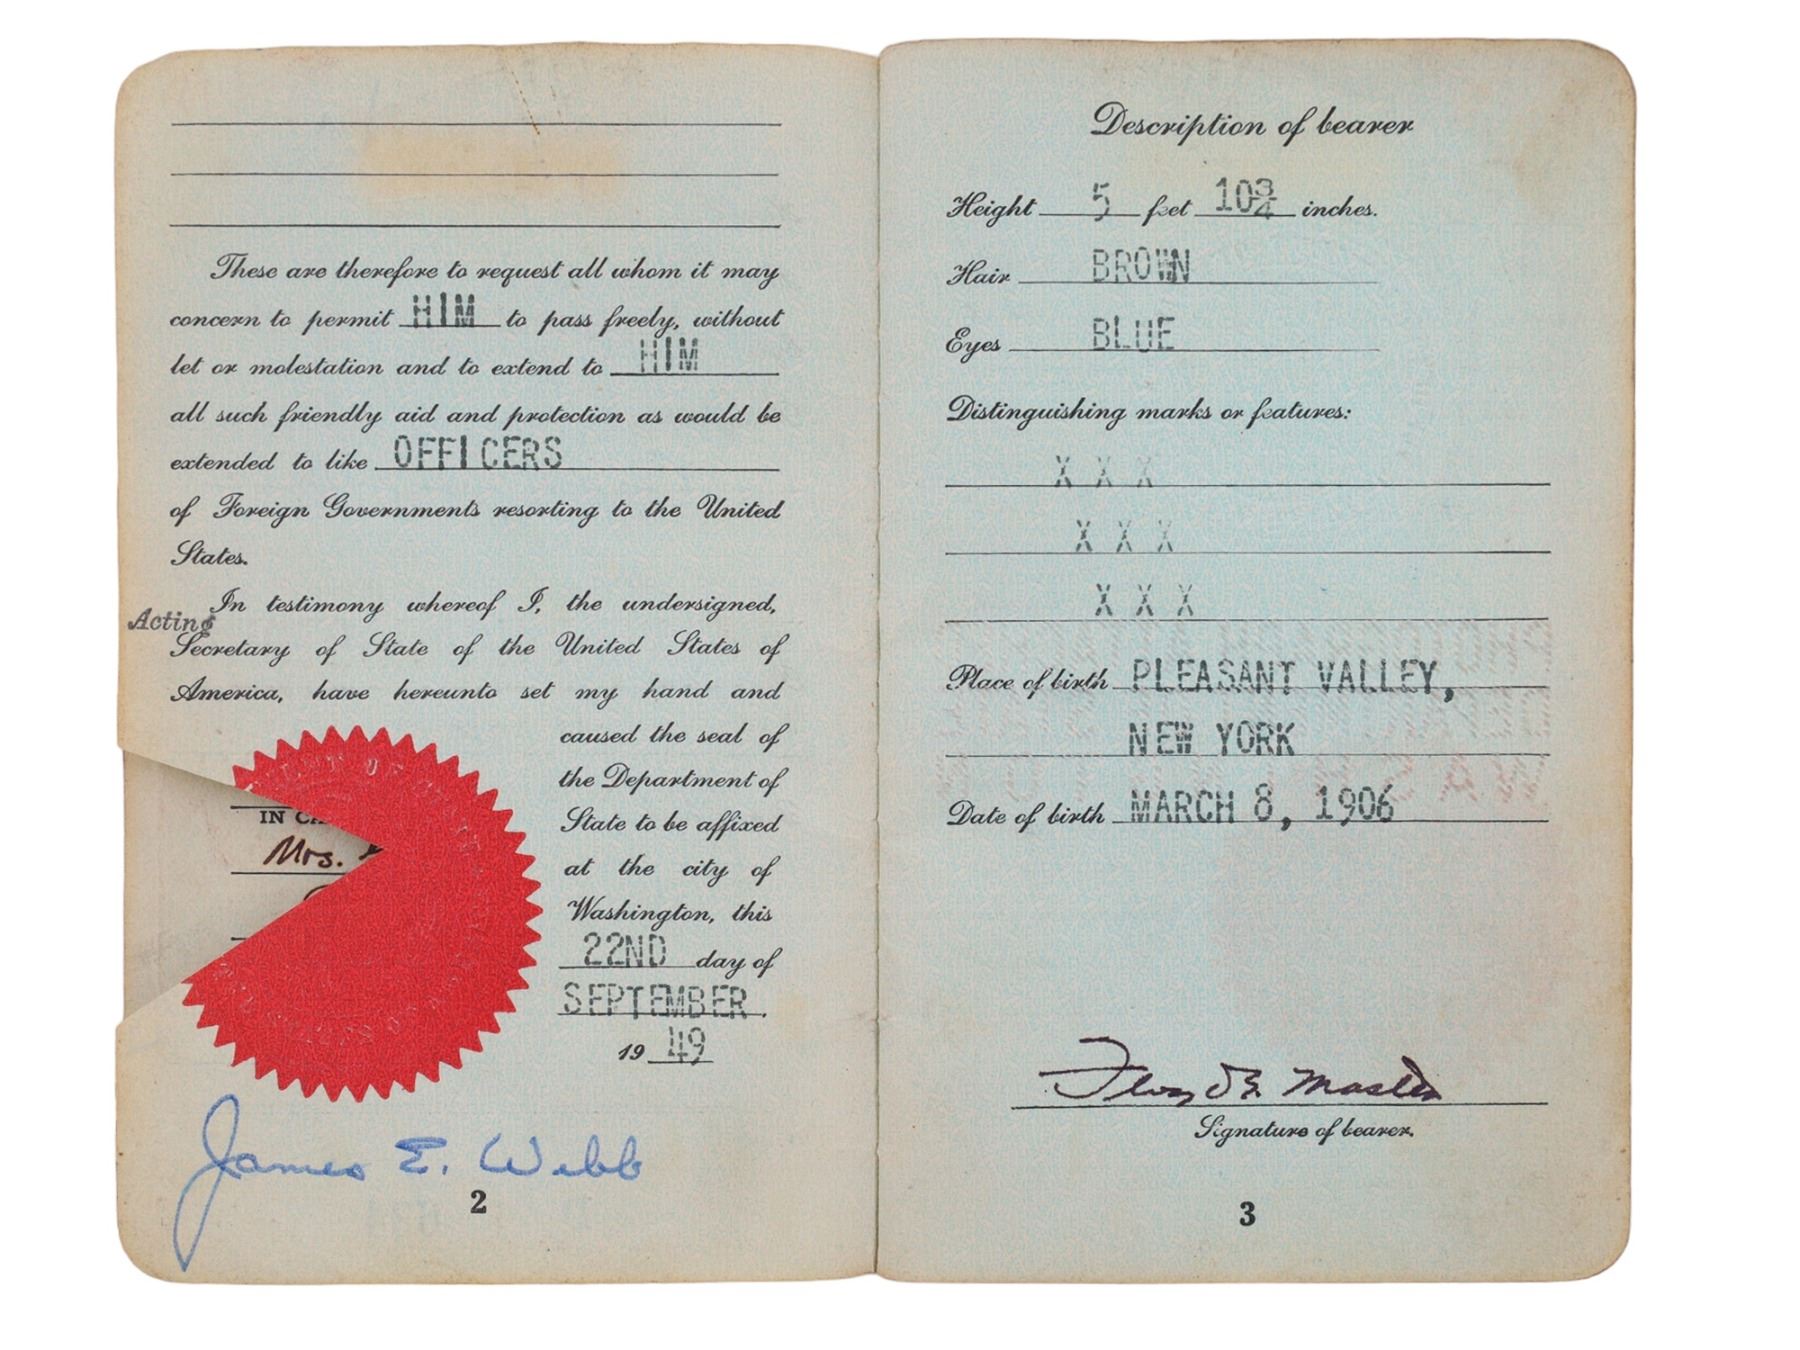 These are therefore to request all whom it may
concern to permit HIM to pass freely, without
let or molestation and to extend to HIM
all such friendly aid and protection as would be
extended to like OFFICERS
of Foreign Governments resorting to the United
States.
In testimony whereof I, the undersigned,
Acting
Secretary of State of the United States of
America, have hereunto set my hand and
caused the seal of
the Department of
State to be affixed
at the city of
Washington, this
22ND day of
SEPTEMBER.
19 49
IN
Mrs.
James E. Webb
2
Description of bearer
Height 5 feet 10 3/4 inches.
Hair BROWN
Eyes BLUE
Distinguishing marks or features:
X X X
X X X
X X X
Place of birth PLEASANT VALLEY,
NEW YORK
Date of birth MARCH 8, 1906
Floyd E. Masten
Signature of bearer.
3